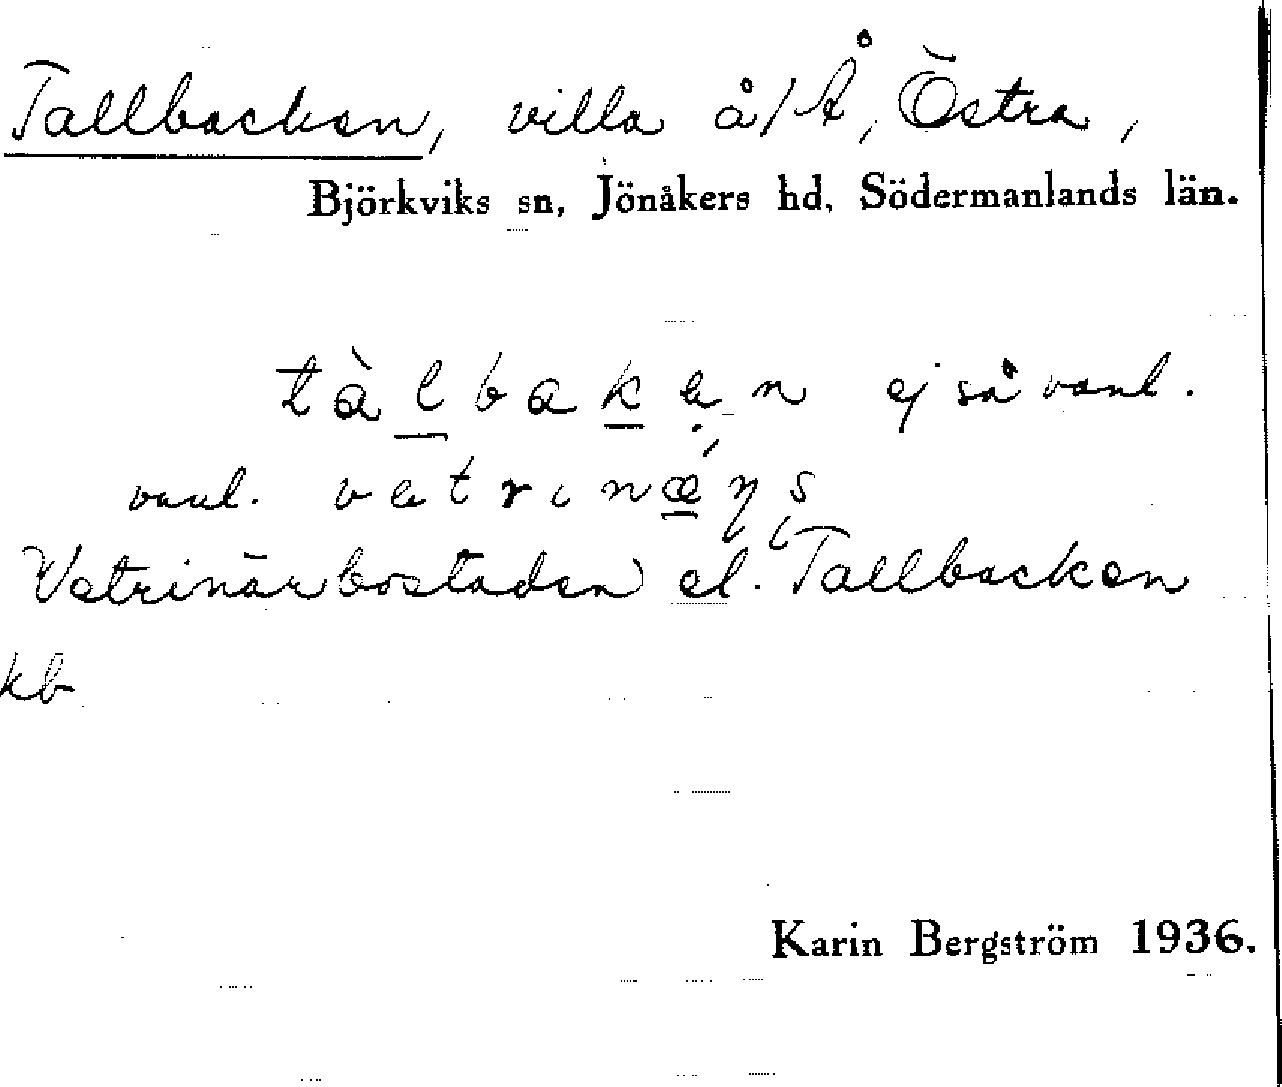 Tallbacken, villa å/Å, Östra,
Björkviks sn, Jönåkers hd, Södermanlands län.
tàlbakẹn ej så vanl.
vanl. vetrinǽṇṣ
Vetrinärbostaden el. Tallbacken
kb
Karin Bergström 1936.